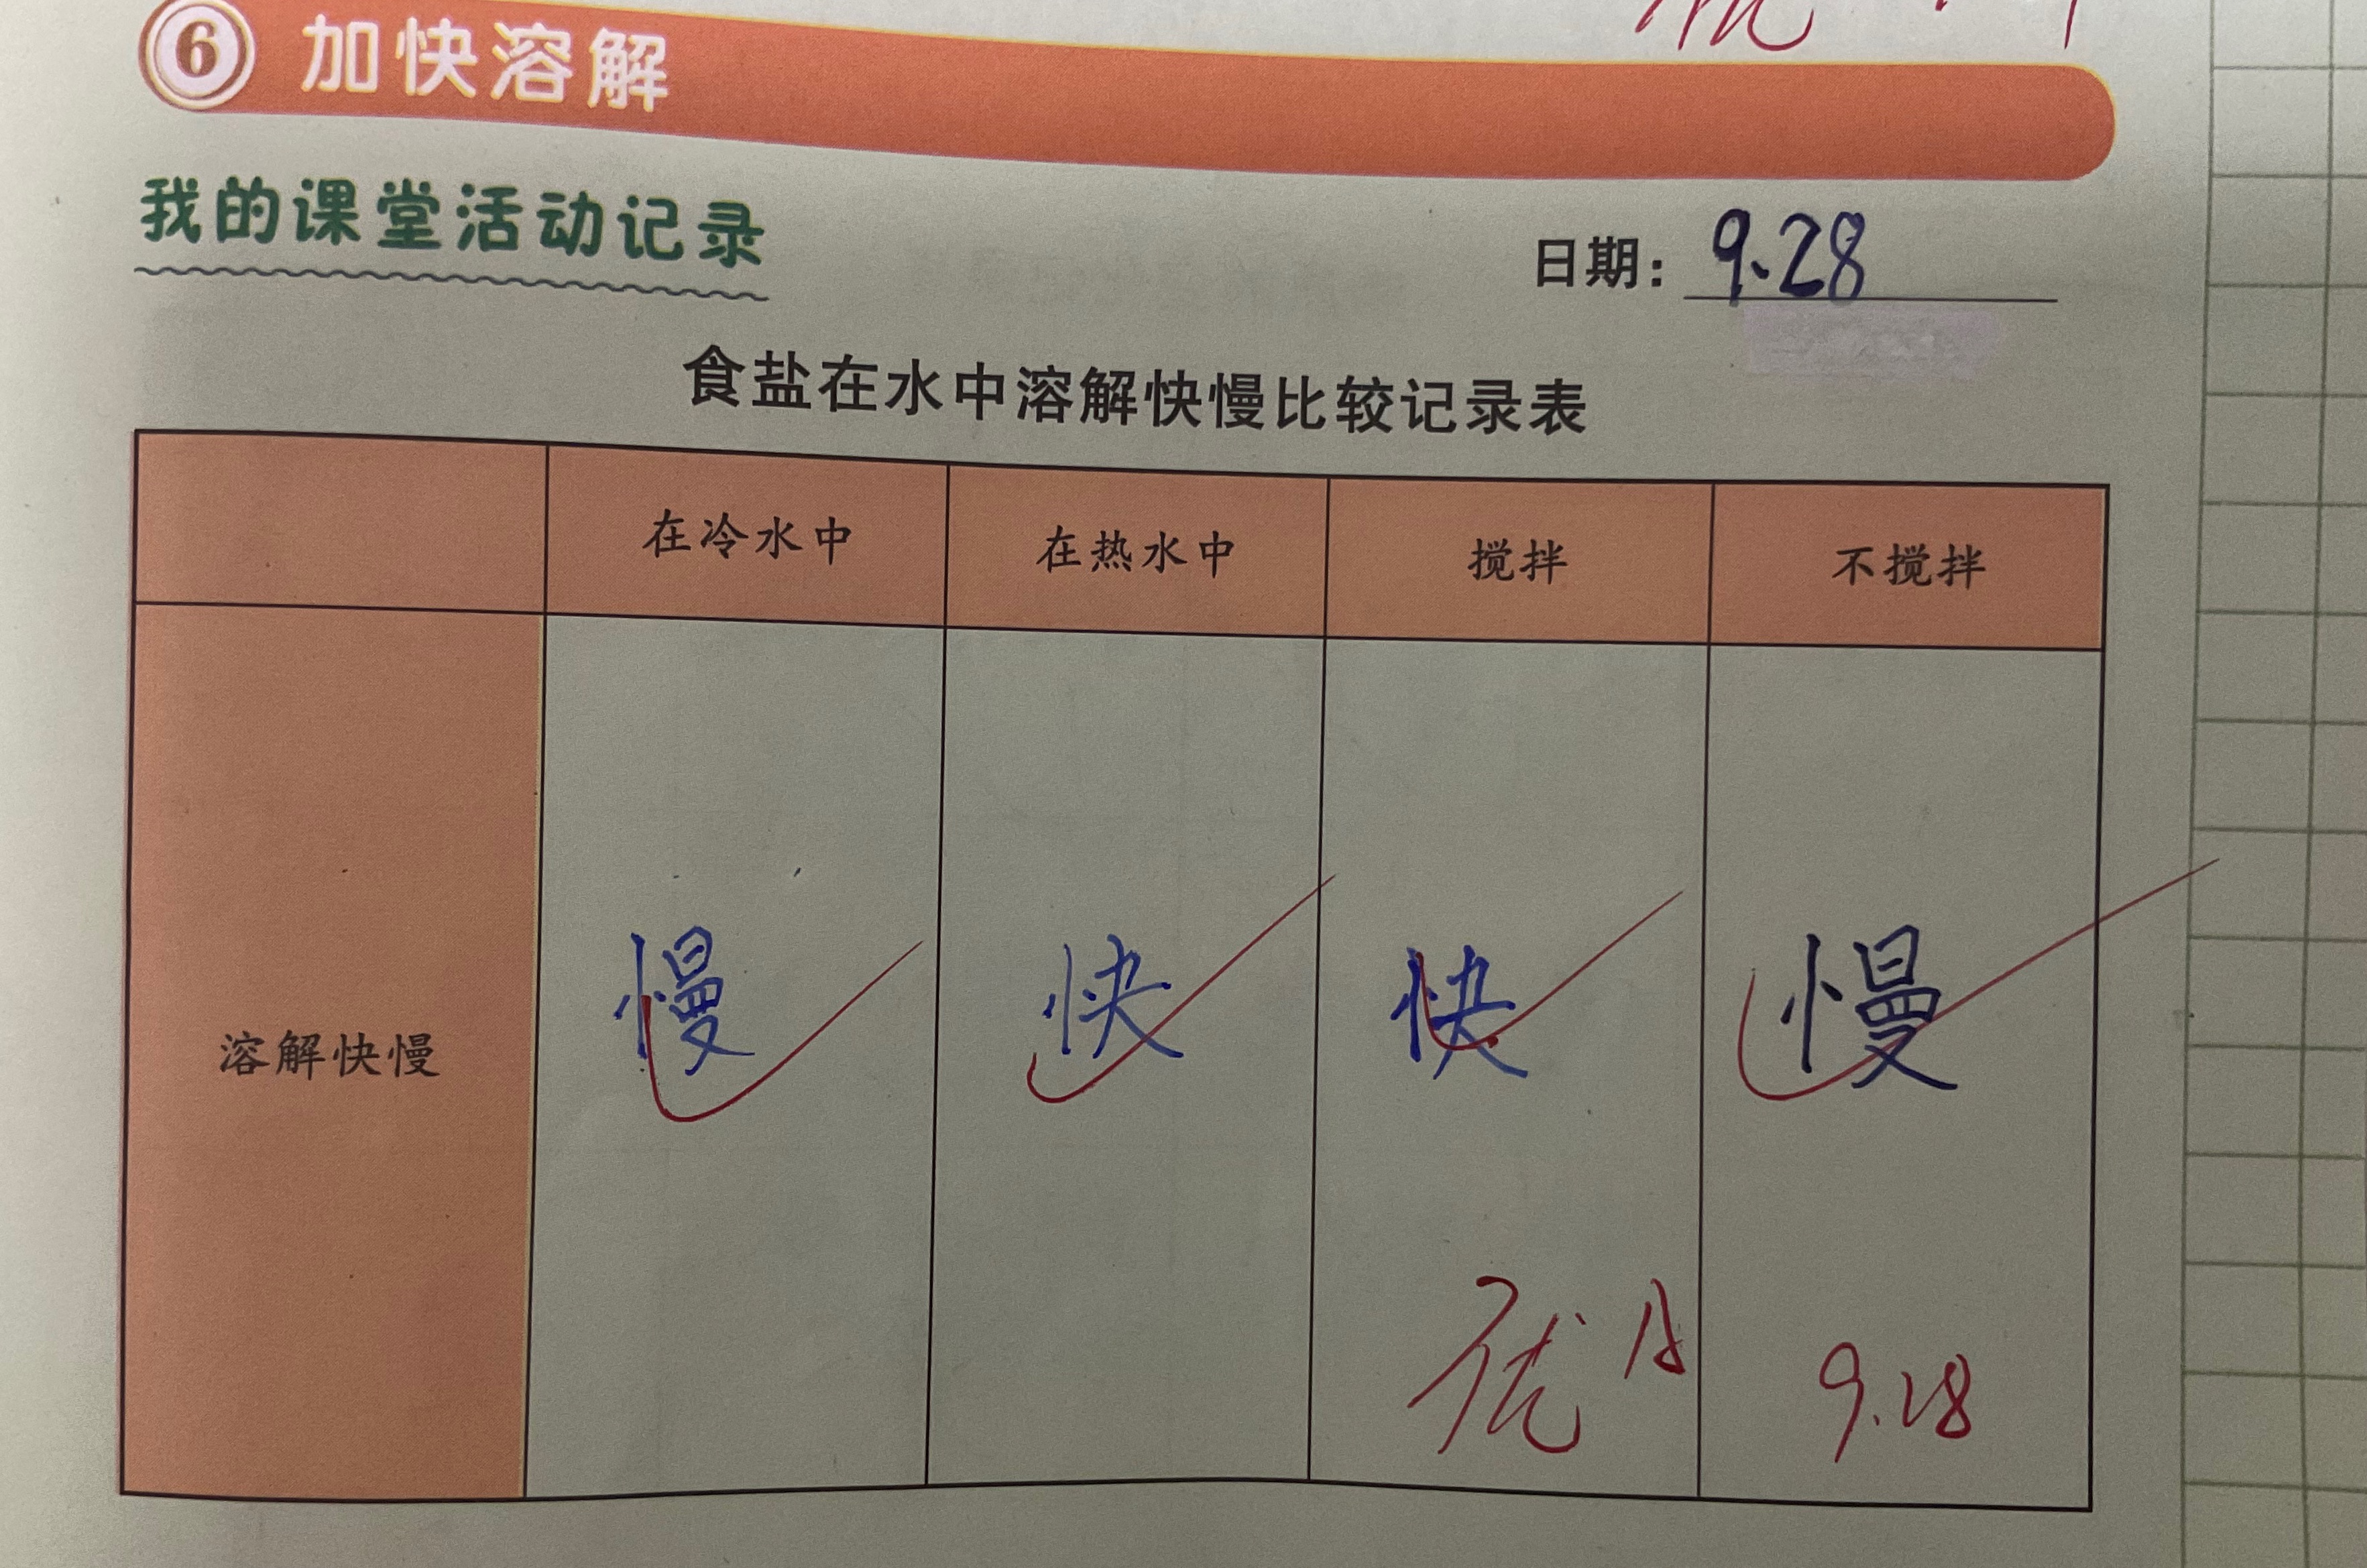 6 加快溶解
我的课堂活动记录
日期: 9.28
食盐在水中溶解快慢比较记录表
在冷水中 在热水中 搅拌 不搅拌
溶解快慢 慢 快 快 慢
优 A 9.28